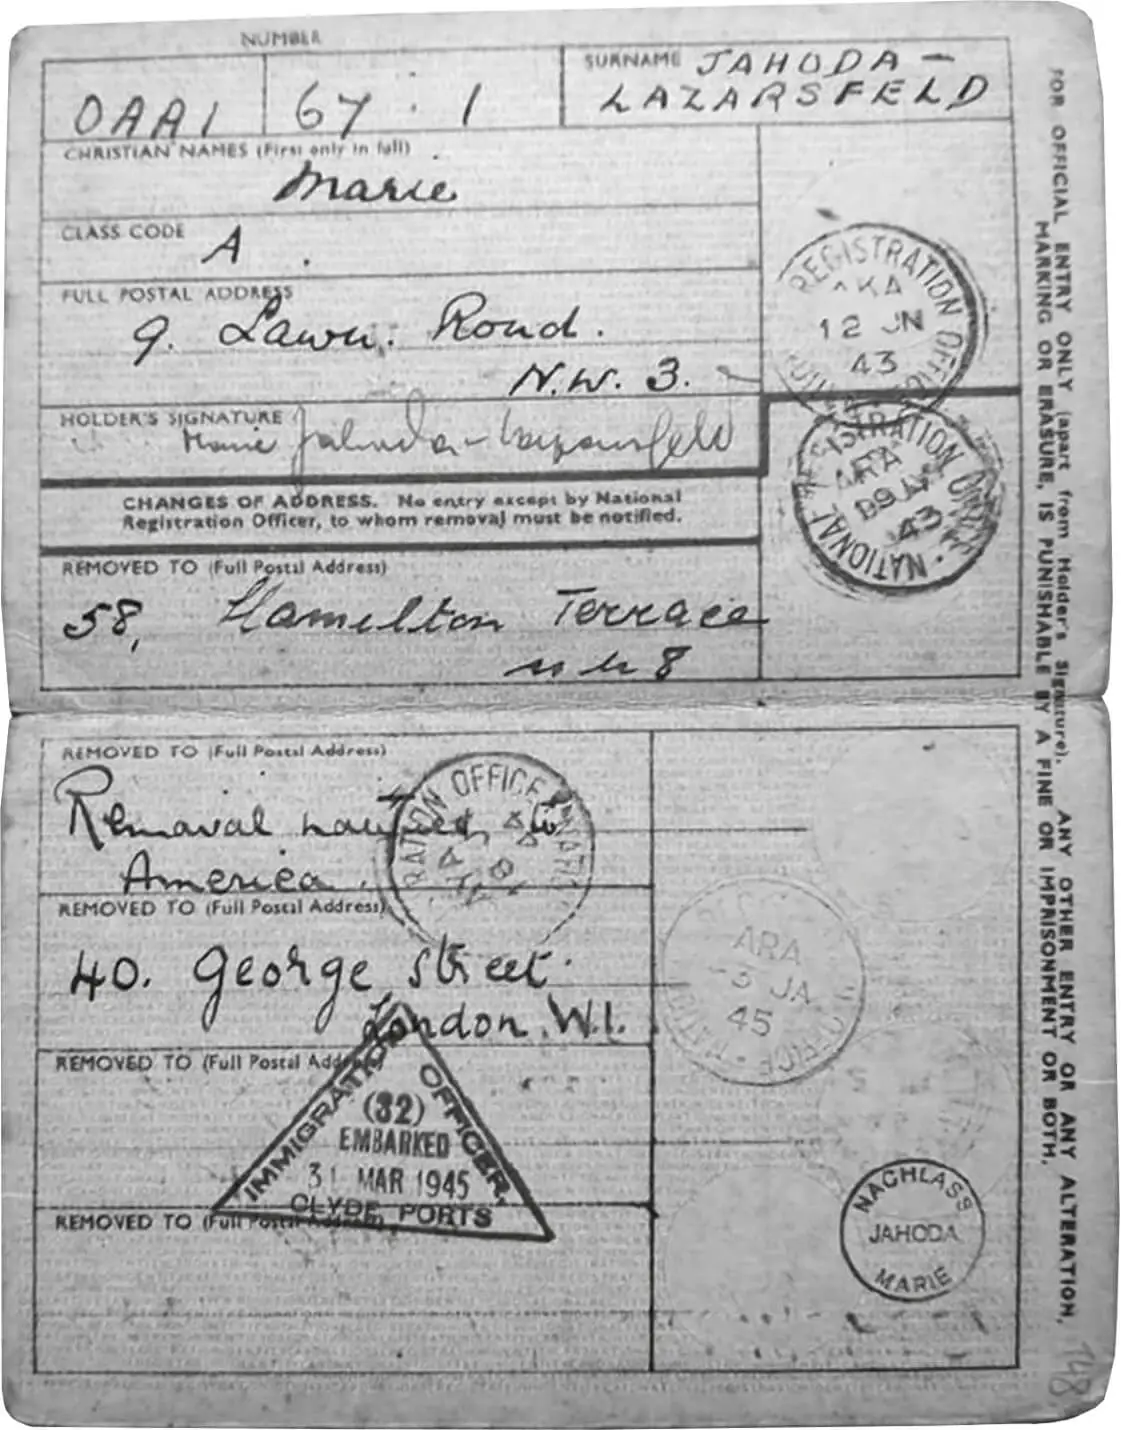 NUMBER
OAAI 67 : 1
SURNAME JAHODA -
LAZARSFELD
CHRISTIAN NAMES (First only in full)
Marie
CLASS CODE A
FULL POSTAL ADDRESS
9. Lawn. Road.
N.W. 3.
HOLDER'S SIGNATURE
Marie Jahoda-Lazarsfeld
REGISTRATION OFFICE
12 JN
43
CHANGES OF ADDRESS. No entry except by National
Registration Officer, to whom removal must be notified.
NATIONAL REGISTRATION
ARA
43
REMOVED TO (Full Postal Address)
58, Hamilton Terrace
N W 8
REMOVED TO (Full Postal Address)
Removal to
America.
RATION OFFICE
REMOVED TO (Full Postal Address)
40. George Street.
London. W.1.
ARA
3 JA
45
REMOVED TO (Full Postal Address)
IMMIGRATION OFFICER,
(32)
EMBARKED
31 MAR 1945
CLYDE PORTS
REMOVED TO (Full Postal Address)
NACHLASS
JAHODA
MARIE
FOR OFFICIAL ENTRY ONLY (apart from Holder's Signature). ANY OTHER ENTRY OR ANY ALTERATION,
MARKING OR ERASURE, IS PUNISHABLE BY A FINE OR IMPRISONMENT OR BOTH.
148